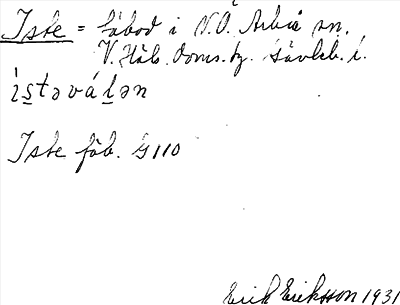 Iste = fäbod i N.Ö. Arbrå sn.
V. Häls. doms. bg. Gävleb. l.
ìs̱təváḻən
Iste fäb. G 110
Erik Eriksson 1931